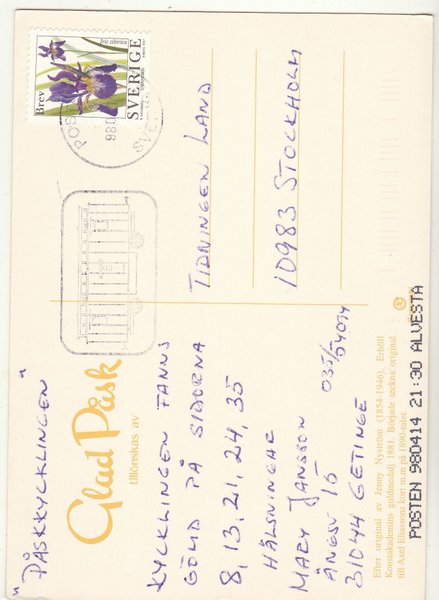 "PÅSKKYCKLINGEN"
Glad Påsk
tillönskas av
KYCKLINGEN FANNS
GÖMD PÅ SIDORNA
8, 13, 21, 24, 35
HÄLSNINGAR
MARY JANSSON
ÄNGSV 15
31044 GETINGE
035/54094
Brev
Iris sibirica
SVERIGE
980
TIDNINGEN LAND
10983 STOCKHOLM
Efter original av Jenny Nyström (1854-1946). Erhöll
Konstakademins guldmedalj 1881. Började teckna original
till Axel Eliassons kort m.m på 1890-talet.
POSTEN 980414 21:30 ALVESTA